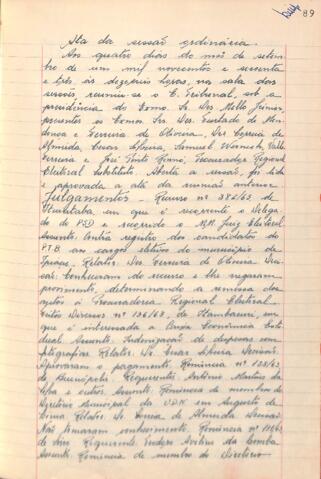 89
Ata da sessão ordinária.
Aos quatro dias do mês de setem-
bro de um mil novecentos e sessenta
e três, às dezesseis horas, na sala das
sessões, reuniu-se o E. Tribunal, sob a
presidência do Exmo. Sr. Des. Mello Júnior,
presentes os Exmos. Srs. Des. Furtado de Men-
donça e Ferreira de Oliveira, Drs. Correia de
Almeida, Cesar Silveira, Samuel Werneck, Valle
Ferreira e José Pinto Renó, Procurador Regional
Eleitoral Substituto. Aberta a sessão, foi lida
e aprovada a ata da reunião anterior.
Julgamentos. Recurso nº 382/63, de
Ituiutaba, em que é recorrente o Delega-
do do PSD e recorrido o M.M. Juiz Eleitoral.
Assunto: Contra registro dos candidatos do
P.T.B. aos cargos eletivos do município de
Ipiaçu. Relator: Des. Ferreira de Oliveira. Deci-
são: Conheceram do recurso e lhe negaram
provimento, determinando a remessa dos
autos à Procuradoria Regional Eleitoral.
Feitos Diversos nº 136/63, de Itambacuri, em
que é interessada a Caixa Econômica Esta-
dual. Assunto: Indenização de despesas com
fotografias. Relator: Dr. Cesar Silveira. Decisão:
Aprovaram o pagamento. Renúncia nº 122/63,
de Requerente: Antônio Martins da
Silva e outros. Assunto: Renúncia de membros do
Diretório Municipal da UDN em Augusto de
Lima. Relator: Dr. Correia de Almeida. Decisão:
Não tomaram conhecimento. Renúncia nº
de Requerente: Avelino da
Assunto: Renúncia de membro do diretório